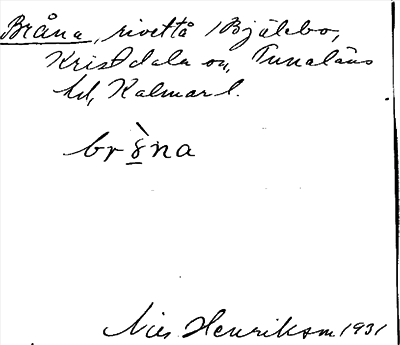 Bråna, rivettå i Bjälebo,
Kristdala sn, Tunaläns
hd, Kalmar l.
br&#x300;ȣna
Nils Henrikson 1931